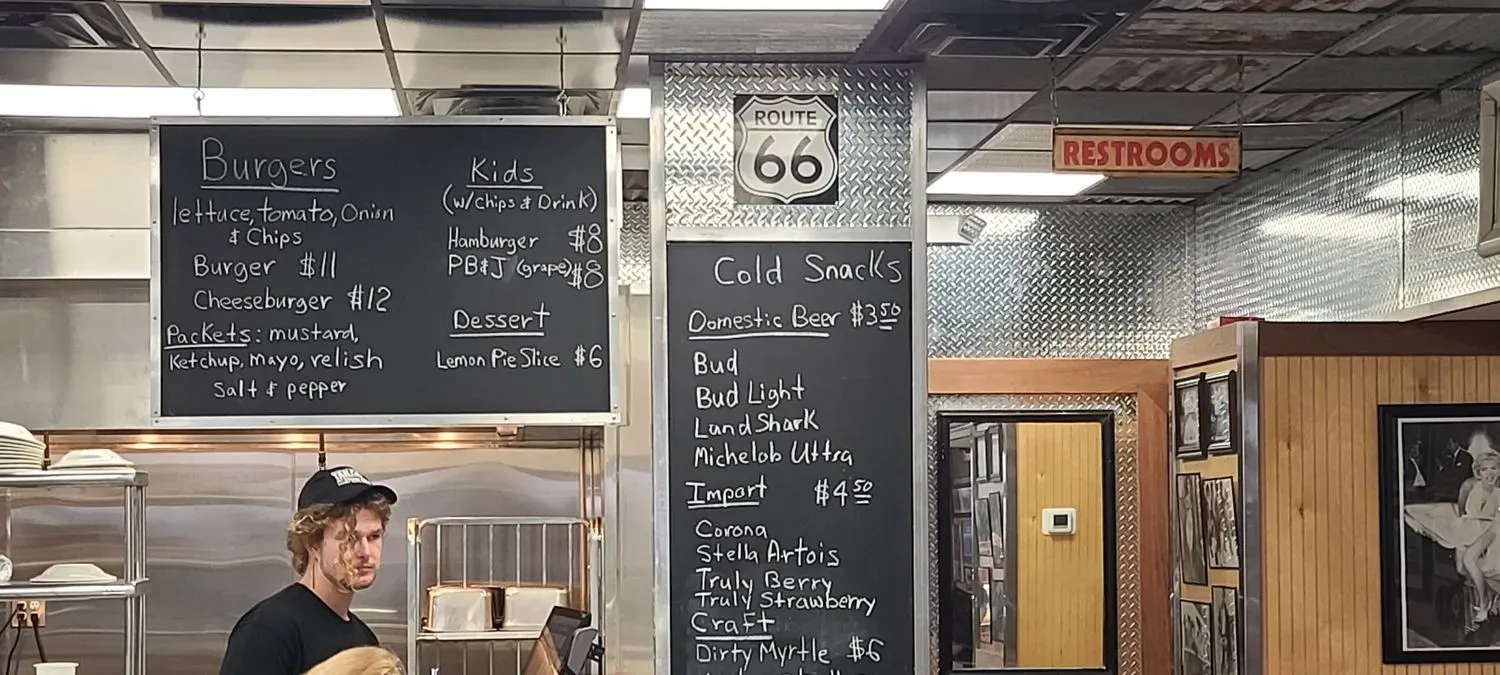 Burgers
lettuce, tomato, Onion
& Chips
Burger $11
Cheeseburger $12
Packets: mustard,
Ketchup, mayo, relish
Salt & pepper
Kids
(w/chips & Drink)
Hamburger $8
PB&J (grape) $8
Dessert
Lemon Pie Slice $6
ROUTE
66
Cold Snacks
Domestic Beer $3 50
Bud
Bud Light
LandShark
Michelob Ultra
Import $4 50
Corona
Stella Artois
Truly Berry
Truly Strawberry
Craft
Dirty Myrtle $6
RESTROOMS